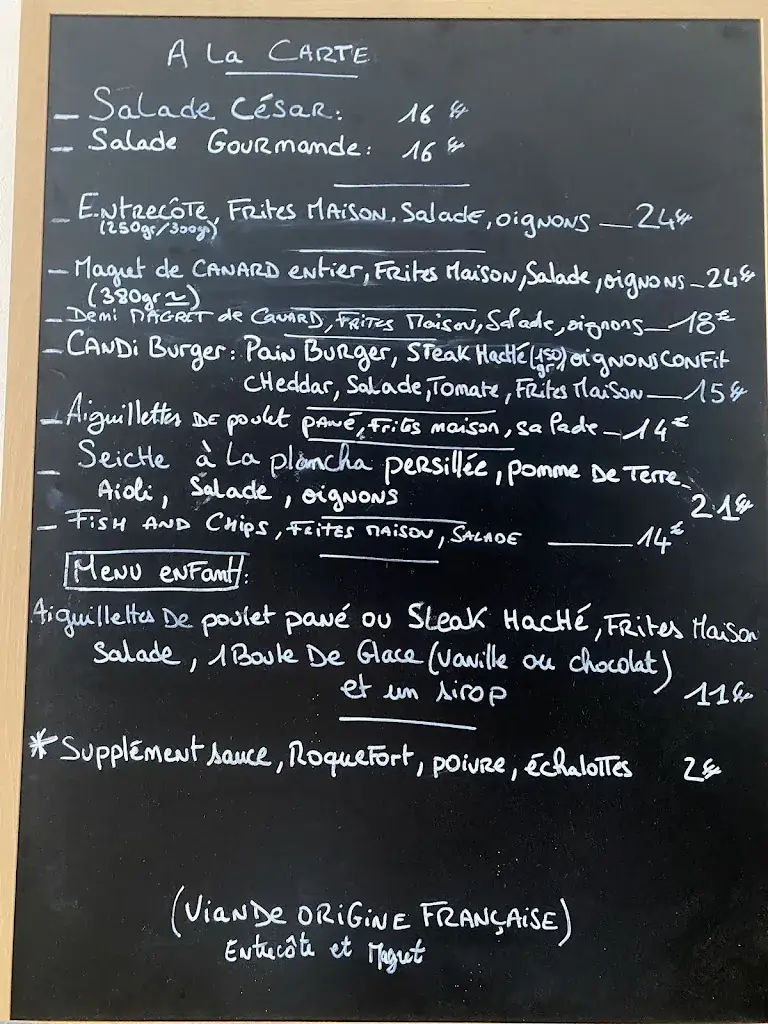 A La CARTE
- Salade César: 16 €
- Salade Gourmande: 16 €
- Entrecôte, Frites Maison, Salade, oignons - 24€
(250gr/300gr)
- Magret de CANARD entier, Frites Maison, Salade, oignons - 24€
(380gr ~)
- Demi MAGRET de CANARD, FRITES Maison, Salade, oignons - 18€
- CANDi Burger: Pain Burger, Steak Haché (150 gr) oignons confit
cheddar, Salade, Tomate, Frites Maison - 15€
- Aiguillettes De poulet pané, frites maison, salade - 14€
- Seiche à La plancha persillée, pomme De Terre
Aioli, Salade, oignons 21€
- Fish AND Chips, FRITES MAISON, SALADE - 14€
Menu enfant:
Aiguillettes De poulet pané ou Steak Haché, Frites Maison
Salade, 1 Boule De Glace (vanille ou chocolat)
et un sirop 11€
* Supplément sauce, Roquefort, poivre, échalottes 2€
(Viande origine Française)
Entrecôte et Magret